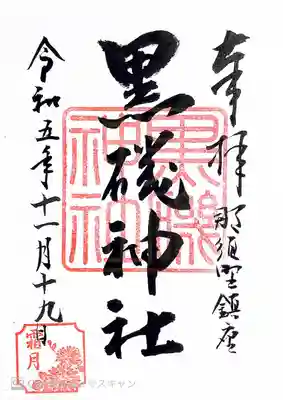 奉拝
那須野鎮座
黒磯神社
黒磯神社
令和五年十一月十九日
霜月